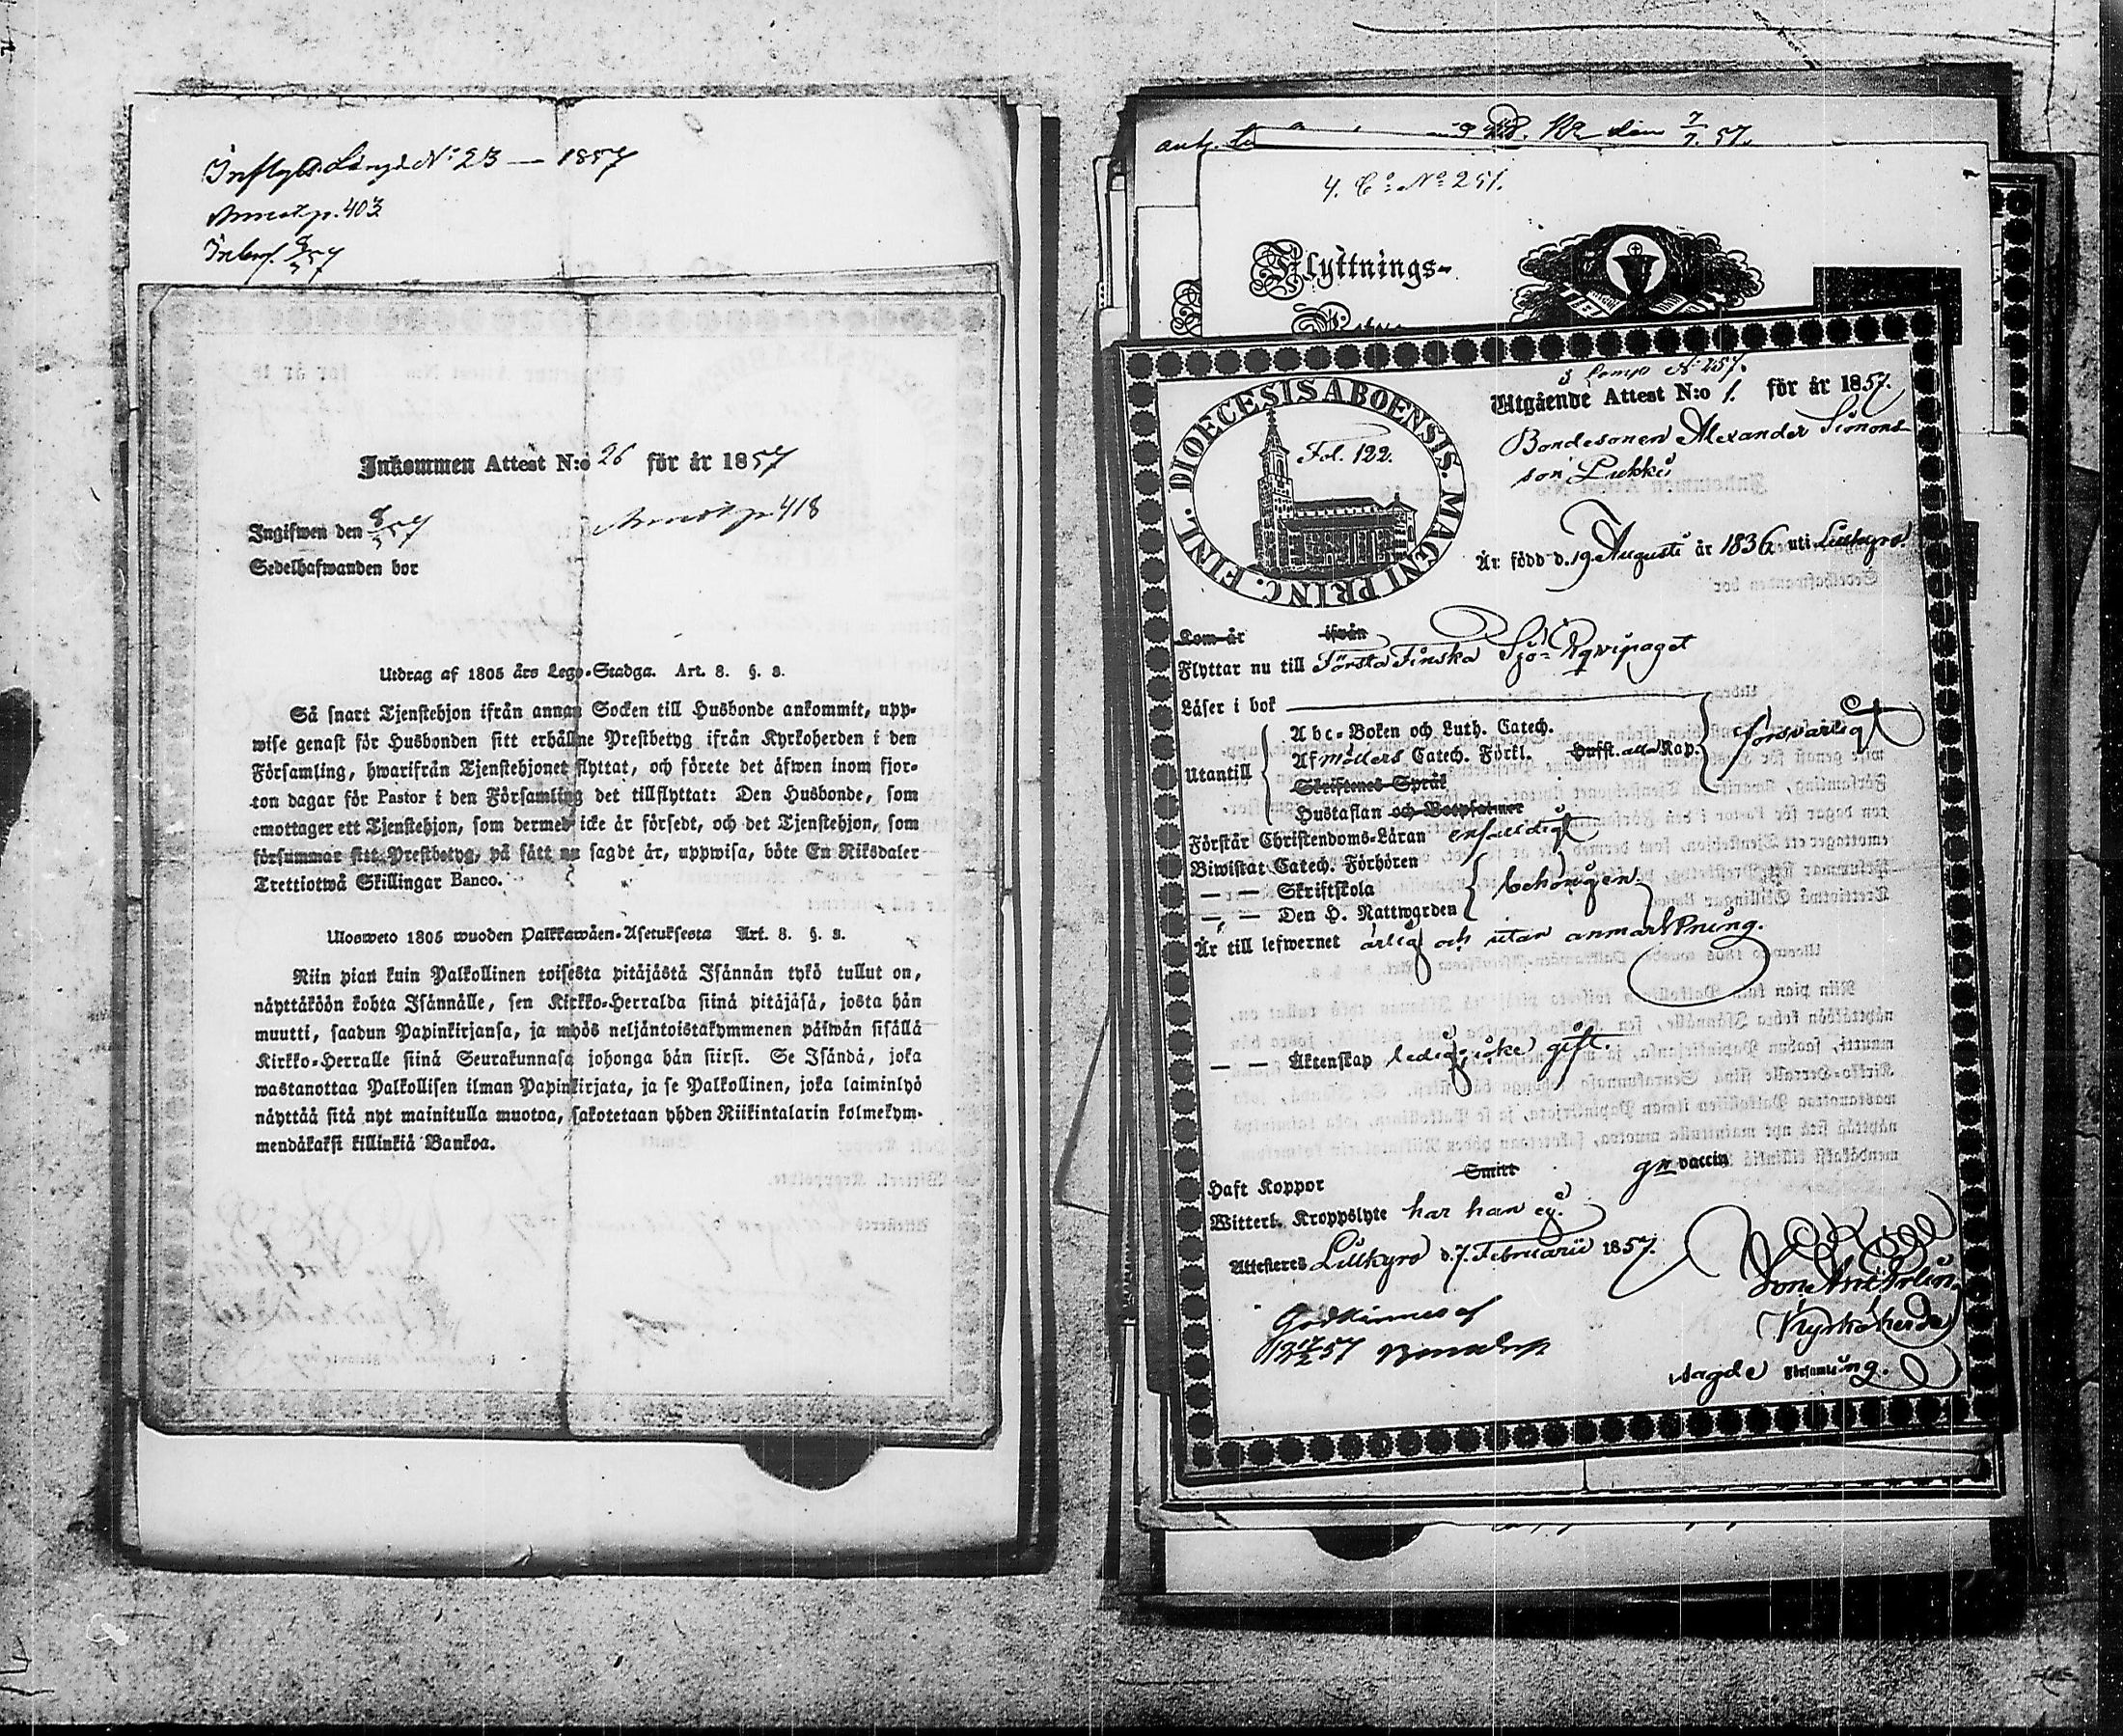 Inflytn. Längd N:o 23 — 1857
p. 403
8/5 57
Inkommen Attest N:o 26 för år 1857
Ingifwen den 8/5 57
p 418
Sedelhafwanden bor
Utdrag af 1805 års Lego-Stadga. Art. 8. §. 3.
Så snart Tjenstehjon ifrån annan Socken till Husbonde ankommit, upp-
wise genast för Husbonden sitt erhållne Prestbetyg ifrån Kyrkoherden i den
Församling, hwarifrån Tjenstehjonet flyttat, och förete det äfwen inom fjor-
ton dagar för Pastor i den Församling det tillflyttat: Den Husbonde, som
emottager ett Tjenstehjon, som dermed icke är försedt, och det Tjenstehjon, som
försummar sitt Prestbetyg, på sätt nu sagdt är, uppwisa, böte En Riksdaler
Trettiotwå Skillingar Banco.
Ulosweto 1805 wuoden Palkkawäen-Asetuksesta Art. 8. §. 3.
Niin pian kuin Palkollinen toisesta pitäjästä Isännän tykö tullut on,
näyttäköön kohta Isännälle, sen Kirkko-Herralda siinä pitäjäsä, josta hän
muutti, saadun Papinkirjansa, ja myös neljäntoistakymmenen päiwän sisällä
Kirkko-Herralle siinä Seurakunnasa johonga hän siirsi. Se Isändä, joka
wastanottaa Palkollisen ilman Papinkirjata, ja se Palkollinen, joka laiminlyö
näyttää sitä nyt mainitulla muotoa, sakotetaan yhden Riikintalarin kolmekym-
mendäkaksi killinkiä Bankoa.
den 7/7. 57.
4. C:o N:o 251.
Flyttnings-
3 Comp N:o 257.
Utgående Attest N:o 1. för år 1857.
DIOECESIS ABOENSIS. MAGNI PRINC. FINL.
Fol. 122.
Bondesonen Alexander Simons-
son Lukku
Är född d. 19 Augusti år 1836 uti Lillkyro.
Kom år ifrån
Flyttar nu till Första Finska Sjö-Eqvipaget
Läser i bok
Utantill
Abc-Boken och Luth. Catech.
Af möllers Catech. Förkl. Hufst. alla Kap.
försvarligt
Skriftenes Språk
Hustaflan och Botpsalmer
Förstår Christendoms-Läran enfaldigt
Biwistat Catech. Förhören
— — Skriftskola
behörigen
— — Den H. Nattwarden
Är till lefwernet ärlig och utan anmärkning.
— — Äktenskap ledig, icke gift.
Haft Koppor Smitt gm vaccin
Witterl. Kroppslyte har han ej.
Attesteras Lillkyro d. 7. Februarii 1857.
Godkännes af
Kyrkoherde
sagde Församling.